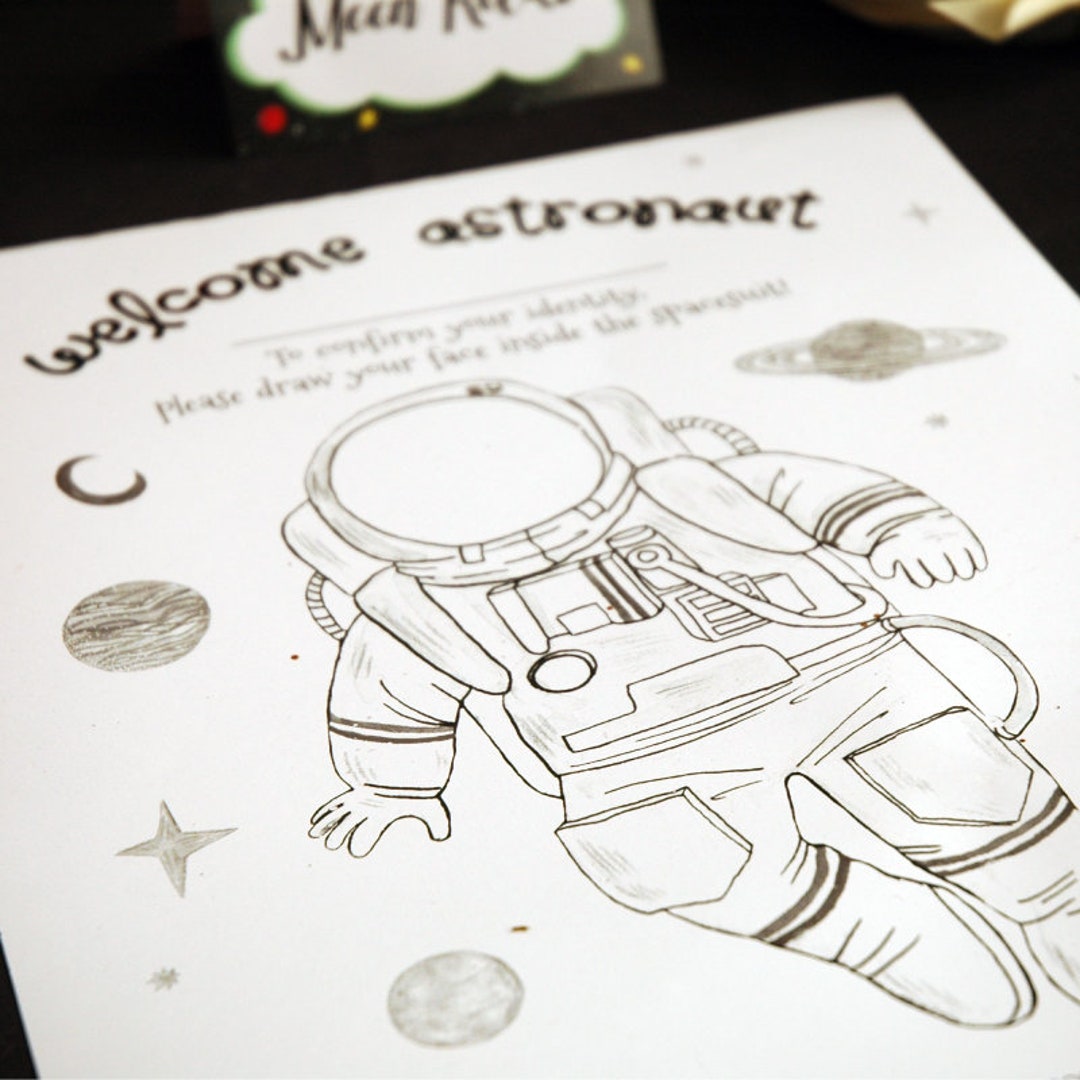 Moon Rocks
welcome astronaut
To confirm your identity,
Please draw your face inside the spacesuit!